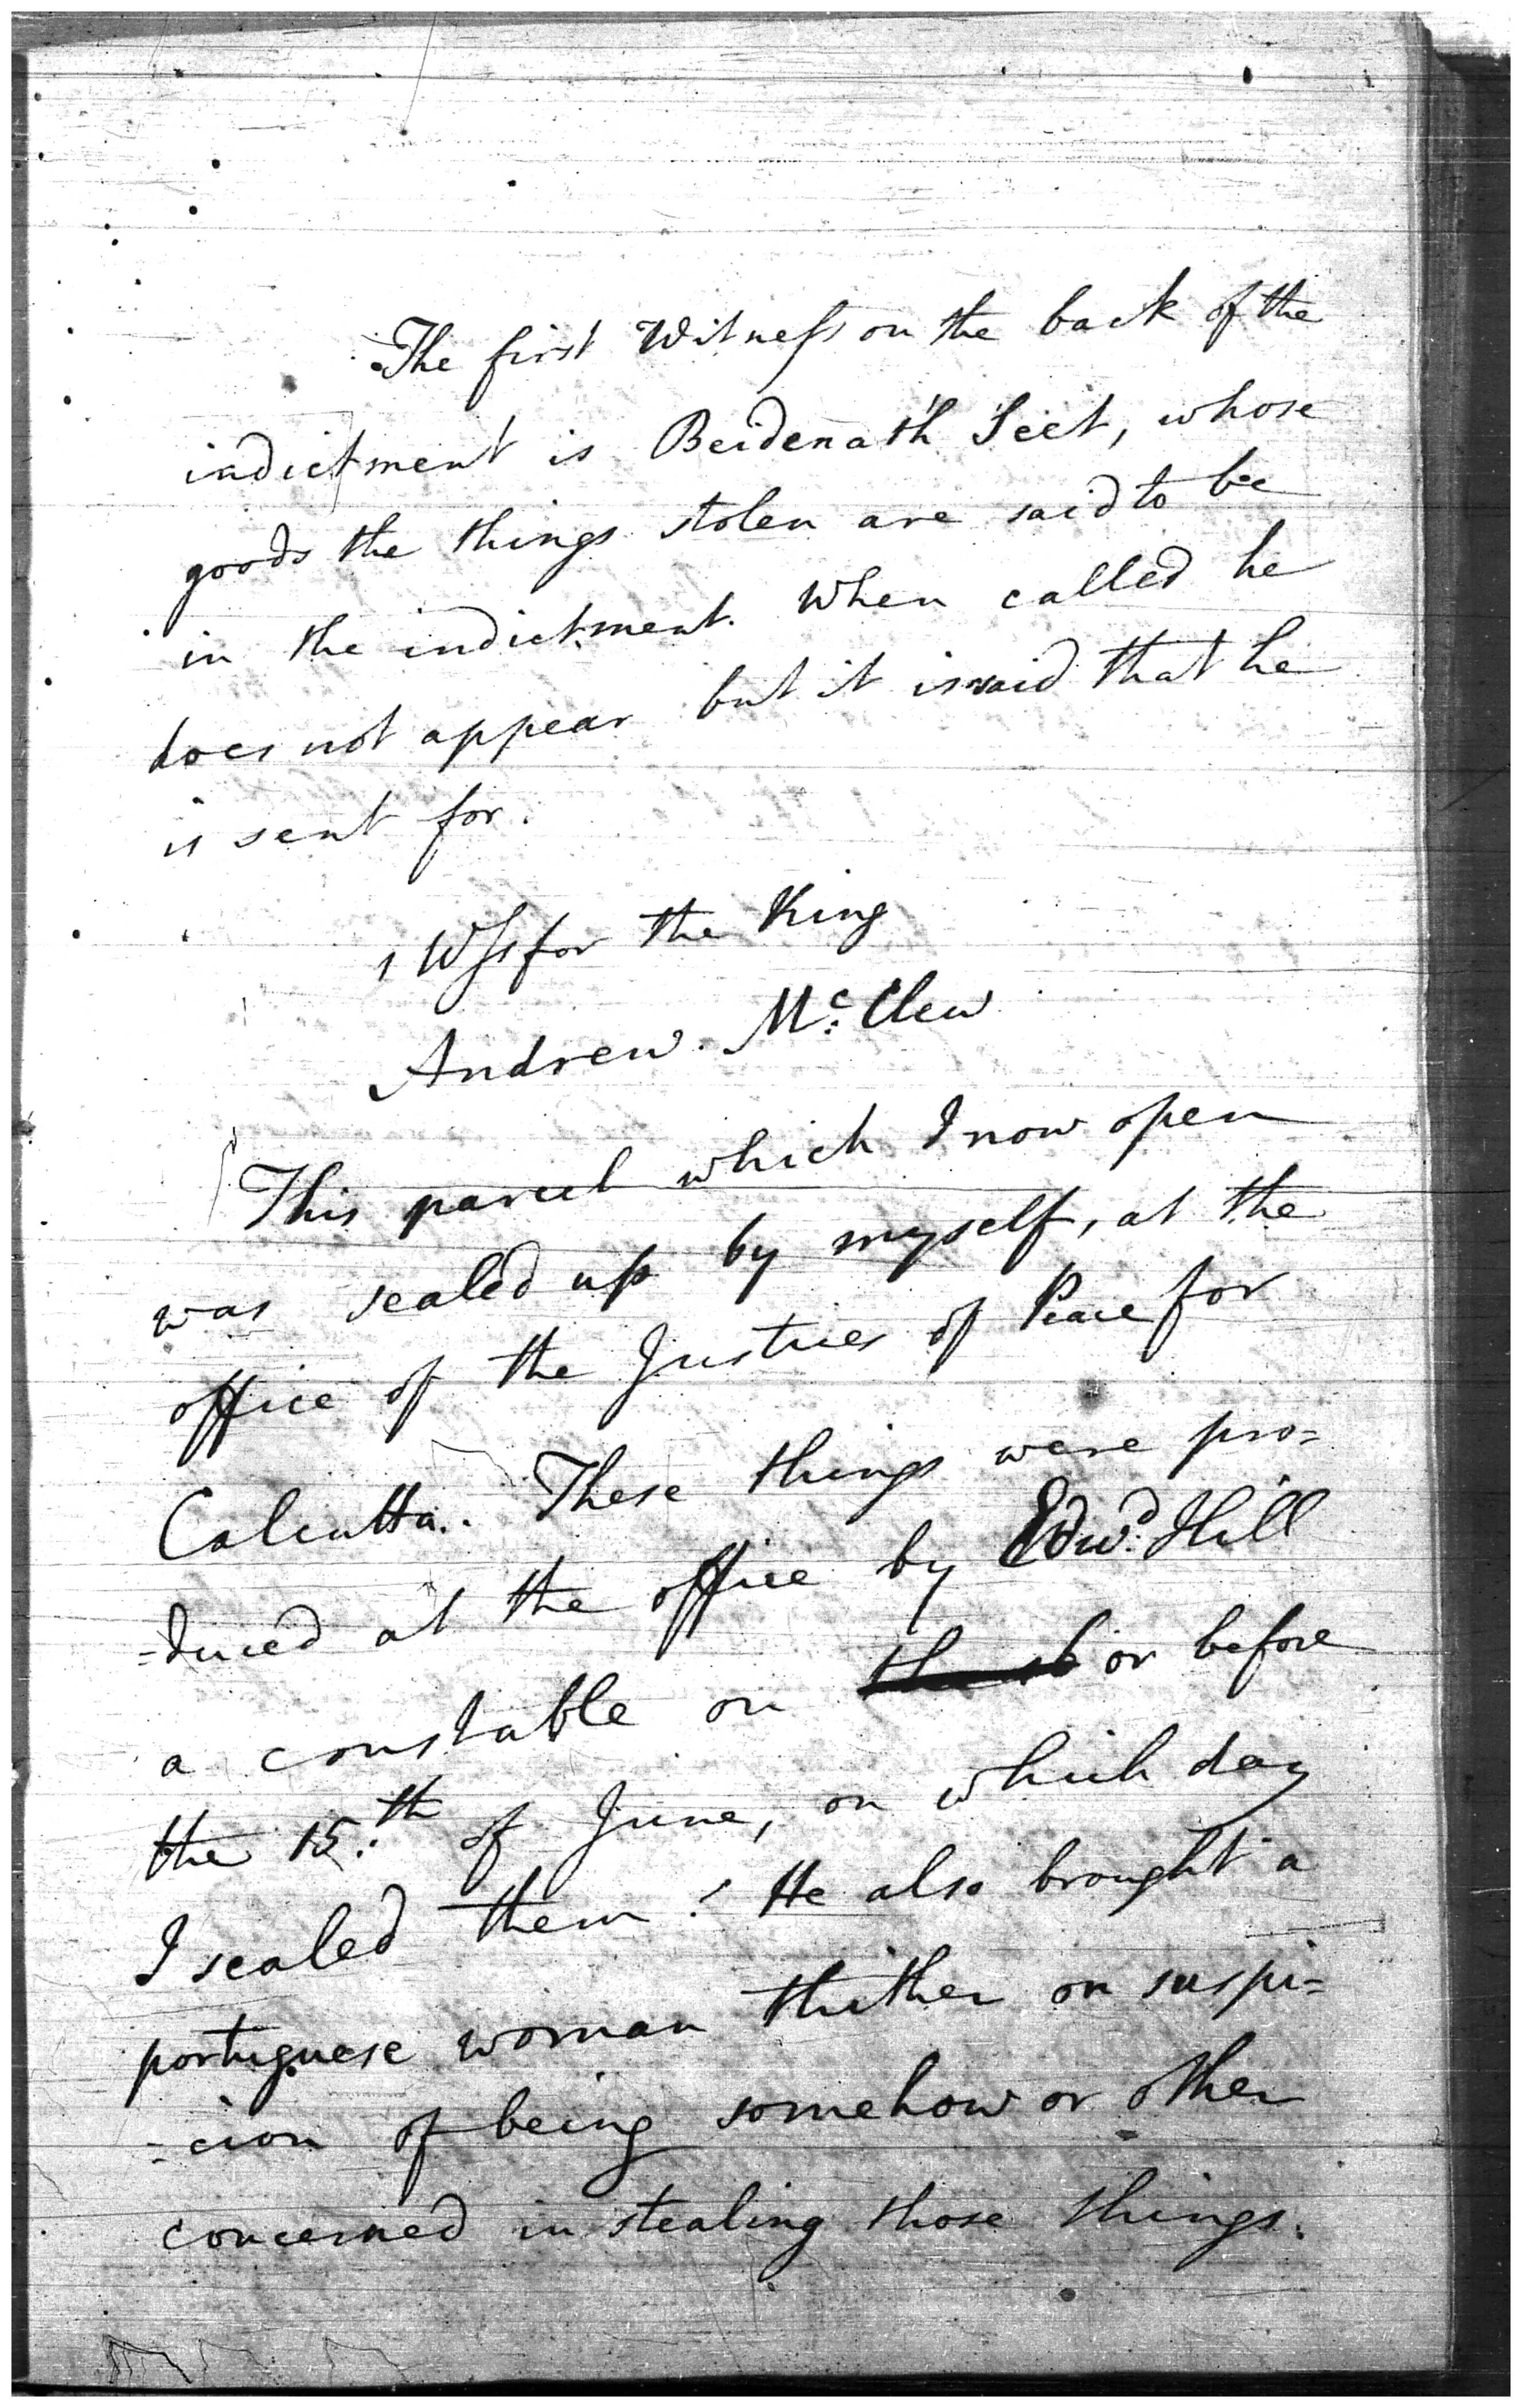 The first Witneſs on the back of the
indictment is Beidenath Seet, whose
goods the things stolen are said to be
in the indictment. When called he
does not appear but it is said that he
is sent for.
1 Wſs for the King
Andrew McClew
This parcel which I now open
was sealed up by myself, at the
office of the Justices of Peace for
Calcutta. These things were pro=
=duced at the office by Edwd. Hill
a constable on or before
the 15.th of June, on which day
I sealed them. He also brought a
portuguese woman thither on suspi=
=cion of being somehow or other
concerned in stealing those things.